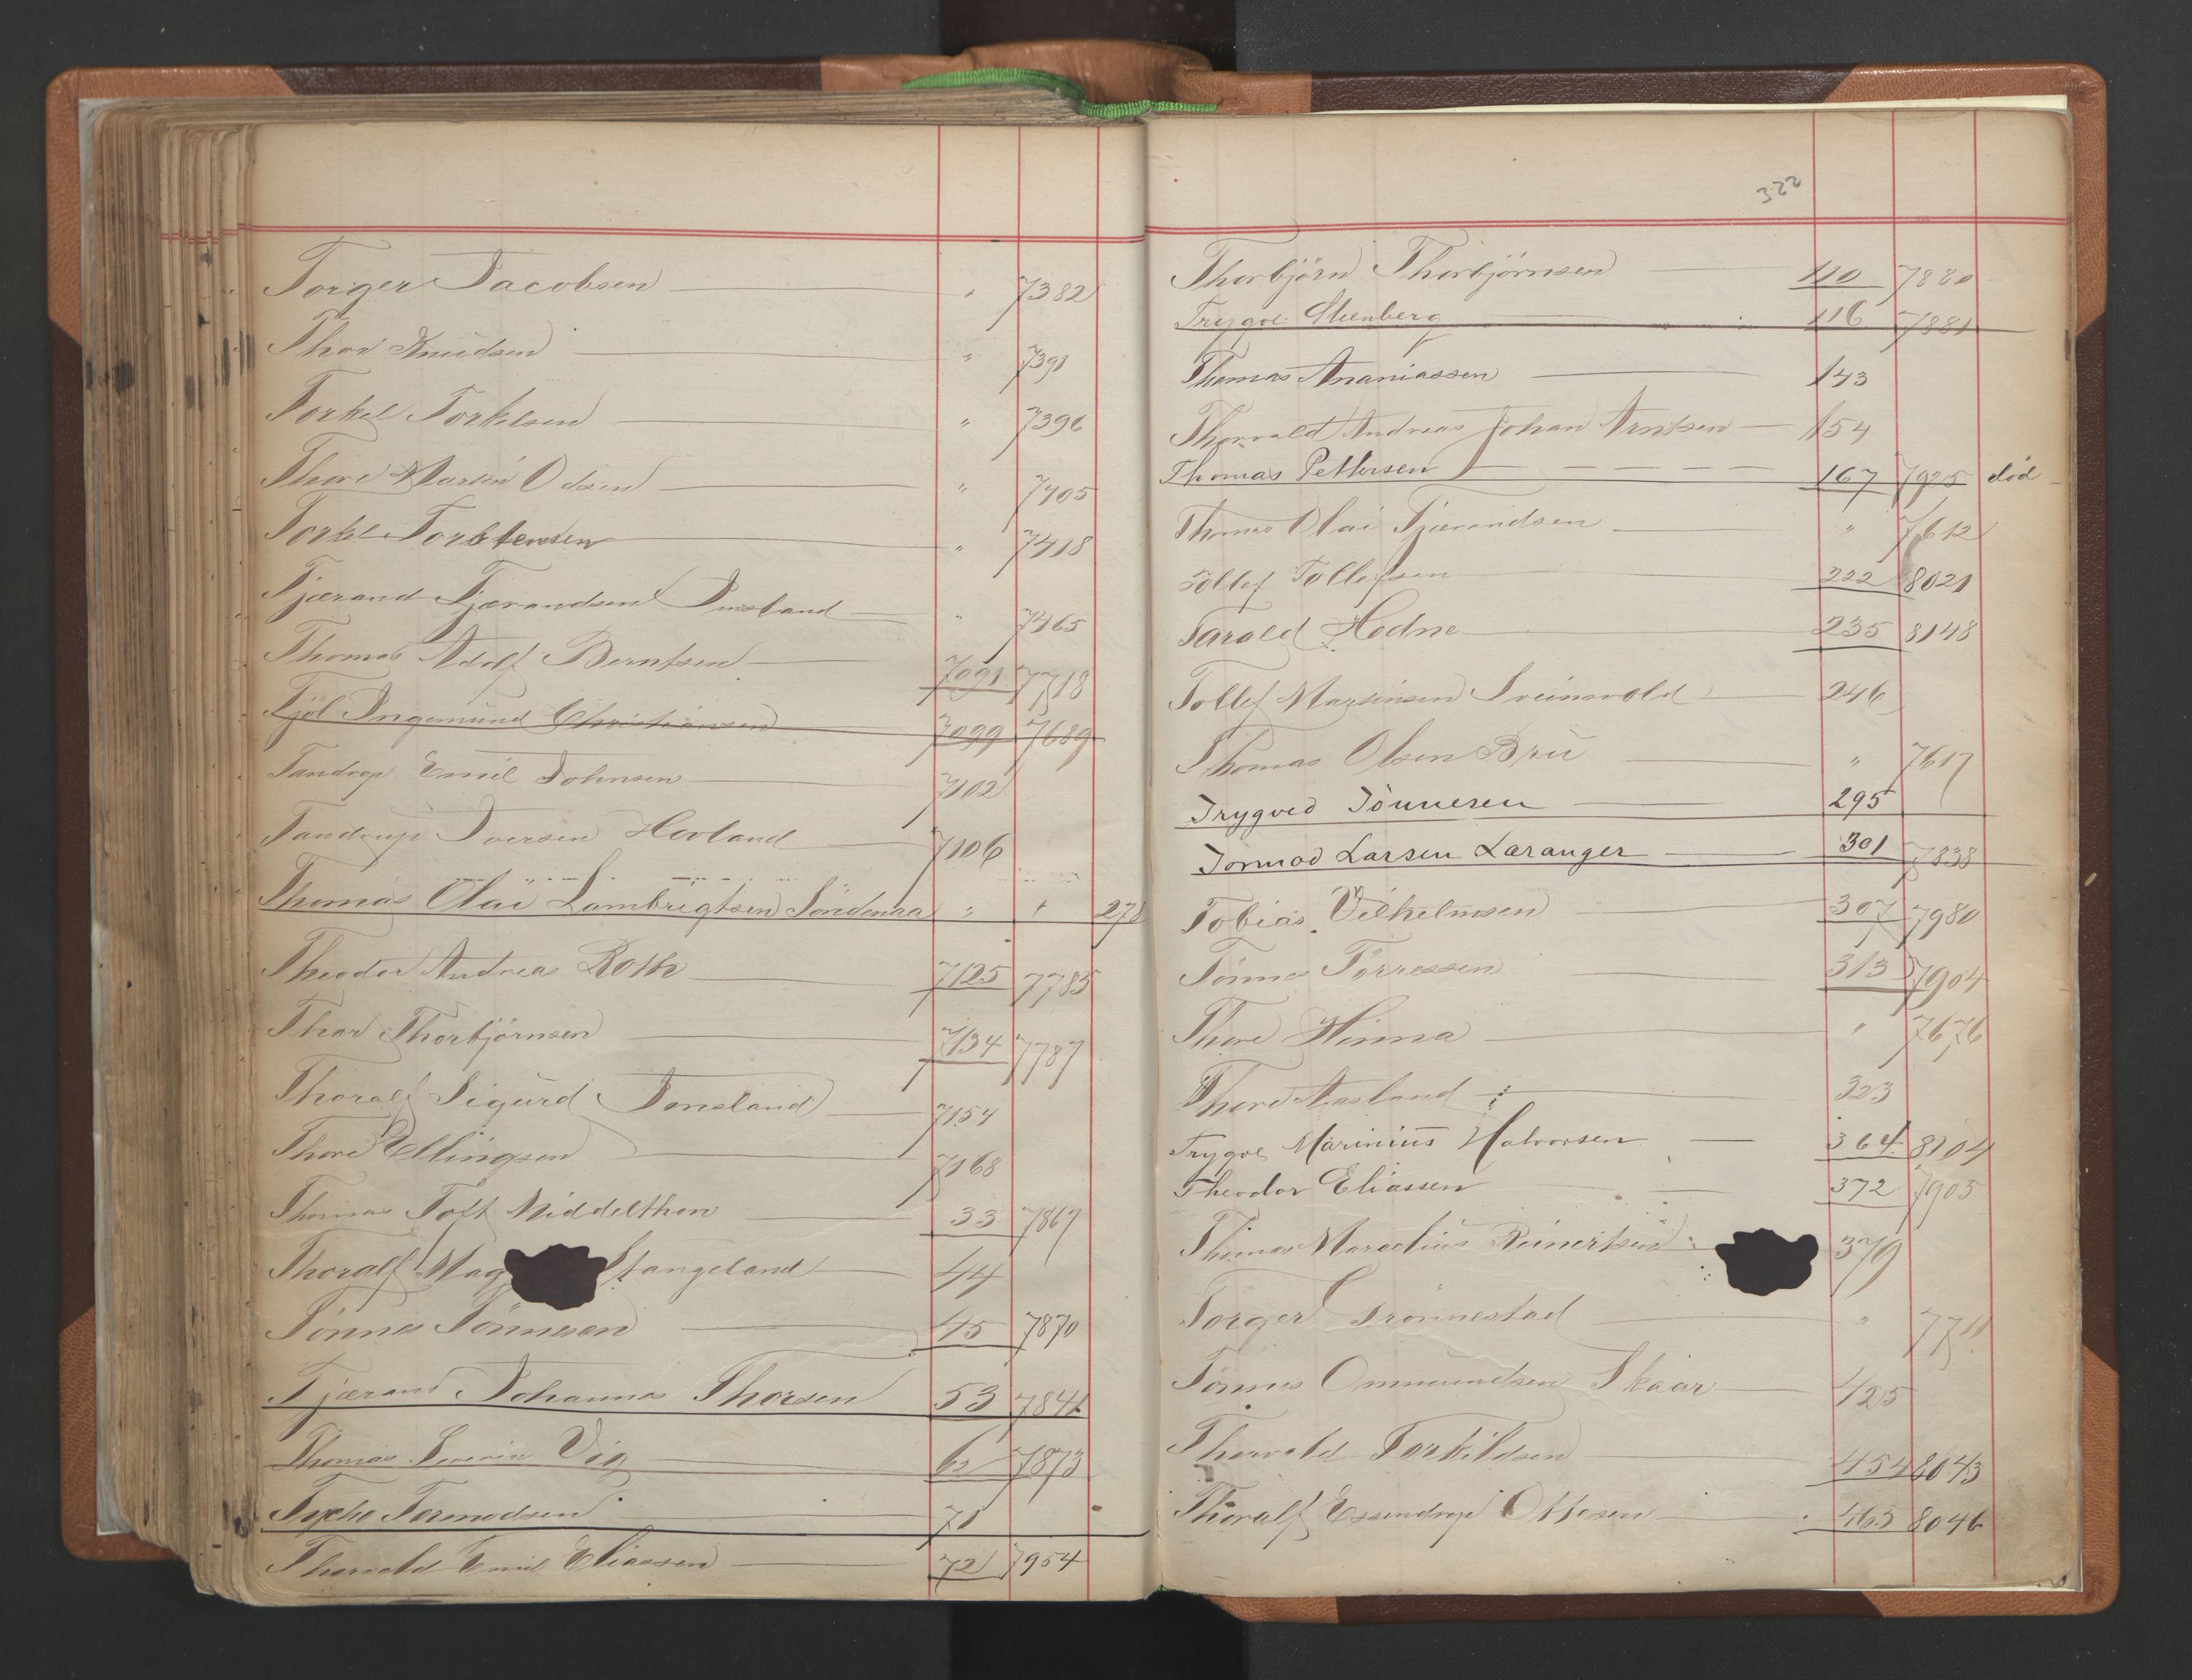 Torger Jacobsen " 7382
Thor Knudsen " 7391
Torkel Torkelsen " 7396
Thore Marsin Olsen " 7405
Torkel Torstensen " 7418
Tjærand Tjærandsen Imsland " 7465
Thomas Adolf Berntsen 7091 7718
Kjöl Ingemund Christiansen 7099 7689
Tandrup Emil Johnsen 7102
Tandrup Iversen Hovland 7106
Thomas Olai Lambrigtsen Söndenaa " " 278
Theodor Andreas Roth 7125 7785
Thor Thorbjörnsen 7134 7787
Thoralf Sigurd Tonsland 7154
Thore Ellingsen 7168
Thomas Toft Middelthon 33 7867
Thoralf Mag Stangeland 44
Tönnes Tönnesen 45 7870
Tjærand Johannes Thorsen 53 7841
Thomas Severin Vig 62 7873
Tycho Tormodsen 71
Thorvald Emil Eliassen 72 7954
322
Thorbjörn Thorbjörnsen 110 7880
Trygve Steenberg 116 7881
Thomas Ananiassen 143
Thorvald Andreas Johan Arntsen 154
Thomas Pettersen 167 7925 död
Thomas Olai Tjærandsen " 7612
Tollef Tollefsen 222 8021
Tarald Hodne 235 8148
Tollef Marsinsen Sveinsvold 246
Thomas Olsen Bru " 7617
Trygved Tönnesen 295
Tormod Larsen Læranger 301 7838
Tobias Vilhelmsen 307 7980
Tönnes Törressen 313 7904
Thore Hinna " 7676
Thore Aasland 323
Trygve Marinius Halvorsen 364 8104
Theodor Eliassen 372 7905
Thomas Marcelius Reinertsen 379
Torger Grönnestad " 7711
Tönnes Ommundsen Skaar 425
Thorvald Torkildsen 454 8043
Thoralf Essendrop Ottesen 465 8046